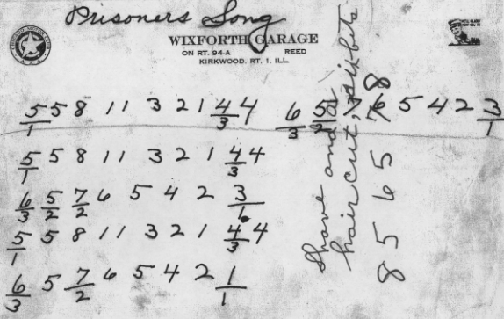 Prisoners Song
WIXFORTH GARAGE
ON RT. 94-A REED
KIRKWOOD, RT. 1, ILL.
5/1 5 8 11 3 2 1 4/3 4 6/3 5/2 7 6 5 4 2 3/1
5/1 5 8 11 3 2 1 4/3 4
6/3 5/2 7/2 6 5 4 2 3/1
5/1 5 8 11 3 2 1 4/3 4
6/3 5 7/2 6 5 4 2 1/1
Shave and a
hair cut, six bits
8 5 5 6 5 7 8